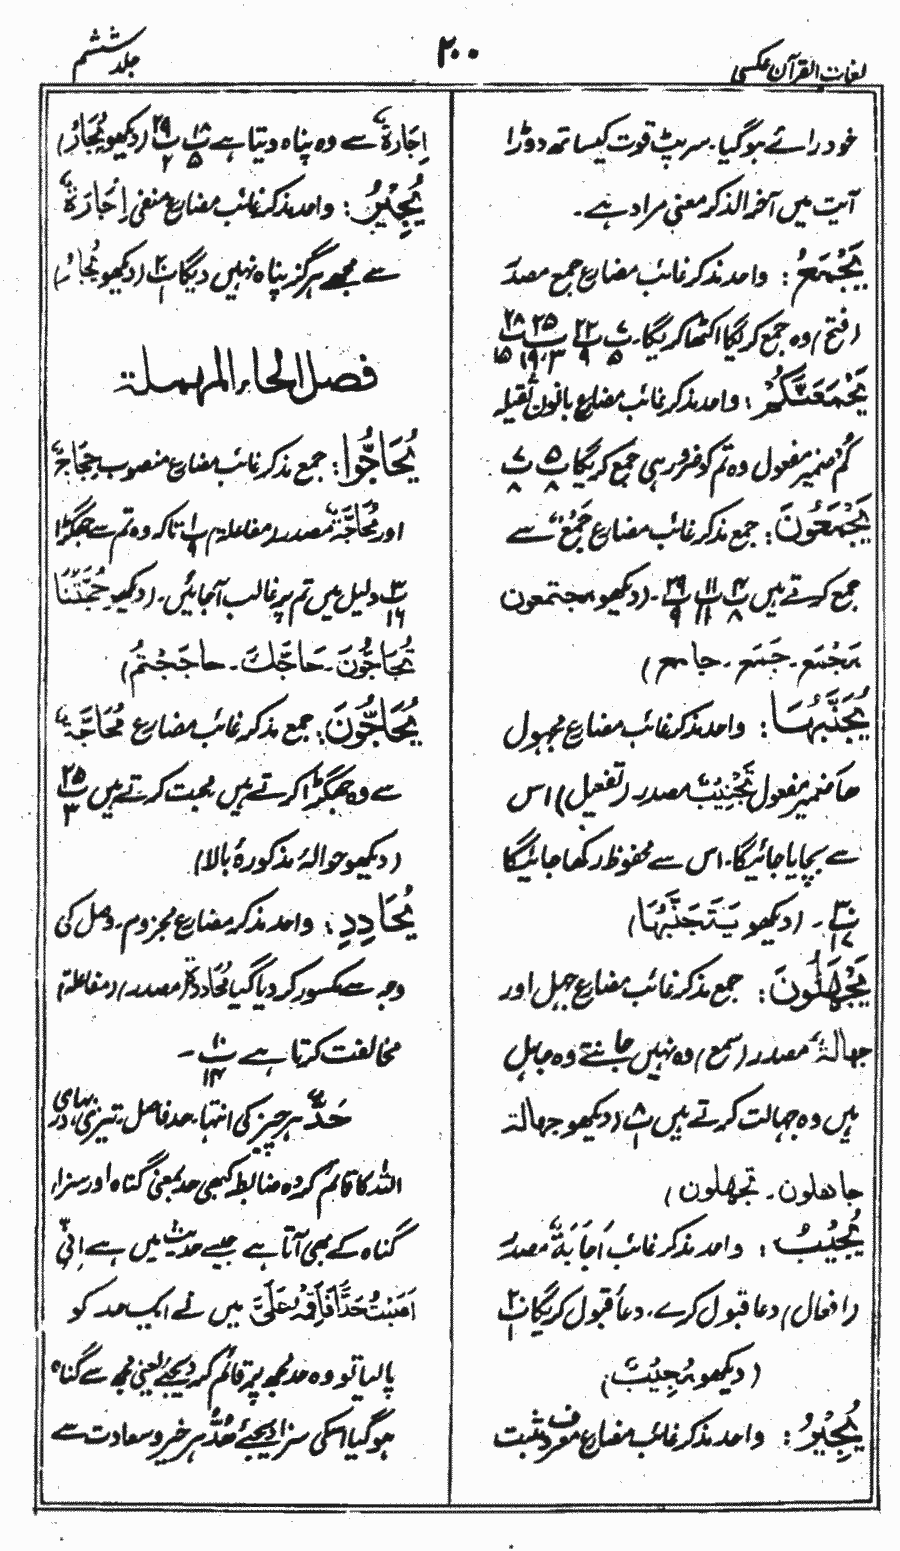 لغات القرآن عکسی
۲۰۰
جلد ششم
خود رائے ہو گیا۔ سرپٹ قوت کیساتھ دوڑا
آیت میں آخر الذکر معنی مراد ہے۔
یَجْمَعُ: واحد مذکر غائب مضارع جمع مصدر
(فتح) وہ جمع کریگا اکٹھا کریگا۔ پ۷ ۵ پ۲۲ ۹ پ۲۵ ۳، ۱۹ پ۲۸ ۱۵
یَجْمَعَنَّکُمْ: واحد مذکر غائب مضارع بانون ثقیلہ
کُمْ ضمیر مفعول وہ تم کو ضرور ہی جمع کریگا پ۵ ۸ پ۷ ۸
یَجْمَعُوْنَ: جمع مذکر غائب مضارع جَمْعٌ سے
جمع کرتے ہیں پ۴ ۸ پ۱۱ ۱۱ پ۲۹ ۹۔ (دیکھو مجتمعون
یَجْمَع۔ جَمَع۔ جامع)
یُجَنَّبُہَا: واحد مذکر غائب مضارع مجہول
ھا ضمیر مفعول تَجْنِیْبٌ مصدر (تفعیل) اس
سے بچایا جائیگا۔ اس سے محفوظ رکھا جائیگا
پ۳۰ ۱۲۔ (دیکھو یَتَجَنَّبُہَا)
یَجْہَلُوْنَ: جمع مذکر غائب مضارع جہل اور
جہالۃٌ مصدر (سمع) وہ نہیں جانتے وہ جاہل
ہیں وہ جہالت کرتے ہیں پ۸ ۱ (دیکھو جہالۃ
جاھلون۔ تجھلون)
یُجِیْبُ: واحد مذکر غائب اِجَابَۃٌ مصدر
(افعال) دعا قبول کرے۔ دعا قبول کریگا پ۲۰ ۱
(دیکھو یُجِیْبُ)
یُجِیْرُ: واحد مذکر غائب مضارع معروف مثبت
اِجَارَۃٌ سے وہ پناہ دیتا ہے پ۱۸ ۵ پ۲۹ ۲ (دیکھو یُجَارُ)
یُجِیْرُ: واحد مذکر غائب مضارع منفی اِجَارَۃٌ
سے مجھے ہرگز پناہ نہیں دیگا پ۲۰ ۱ (دیکھو یُجَارُ)
فصل الحاء المہملۃ
یُحَاجُّوْا: جمع مذکر غائب مضارع منصوب حِجَاجٌ
اور مُحَاجَّۃٌ مصدر (مفاعلۃ) پ۱ ۹ تاکہ وہ تم سے جھگڑا
پ۳ ۱۶ دلیل میں تم پر غالب آجائیں۔ (دیکھو حُجَّتُنَا
تُحَاجُّوْنَ۔ حَاجَّکَ۔ حَاجَجْتُمْ)
یُحَاجُّوْنَ: جمع مذکر غائب مضارع مُحَاجَّۃٌ
سے وہ جھگڑا کرتے ہیں حجت کرتے ہیں پ۲۵ ۳
(دیکھو حوالۂ مذکورۂ بالا)
یُحَادِدِ: واحد مذکر مضارع مجزوم۔ وصل کی
وجہ سے مکسور کر دیا گیا مُحَادَدَۃٌ (مصدر) (مفاعلۃ)
مخالفت کرتا ہے پ۱۰ ۱۴۔
حَدٌّ ہر چیز کی انتہا۔ حد فاصل۔ تیزی،
اللہ کا قائم کردہ ضابطہ کبھی حد بمعنی گناہ اور سزاء
گناہ کے بھی آتا ہے جیسے حدیث میں ہے اِنِّی
اَصَبْتُ حَدًّا فَاَقِمْہُ عَلَیَّ میں نے ایک حد کو
پالیا تو وہ حد مجھ پر قائم کر دیجئے یعنی مجھ سے گناہ
ہو گیا اسکی سزا دیجئے حُدَّ ہر خیر و سعادت سے